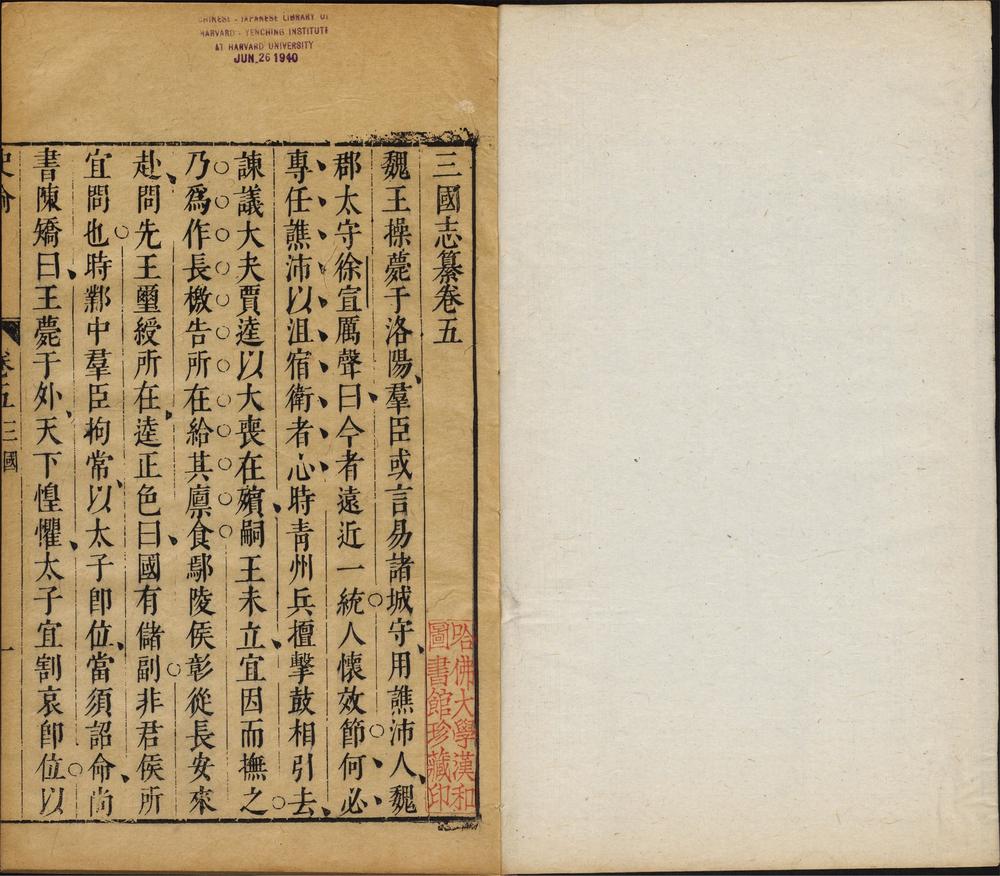 CHINESE - JAPANESE LIBRARY OF
HARVARD - YENCHING INSTITUTE
AT HARVARD UNIVERSITY
JUN 26 1940
三國志纂卷五
魏王操薨于洛陽、羣臣或言易諸城守、用譙沛人、魏
郡太守徐宣厲聲曰、今者遠近一統人懷效節何必
專任譙沛以沮宿衛者心時靑州兵擅擊鼓相引去、
諫議大夫賈逵以大喪在殯、嗣王未立、宜因而撫之
乃爲作長檄告所在給其廪食鄢陵侯彰從長安來
赴、問先王璽綬所在、逵正色曰、國有儲副非君侯所
宜問也時鄴中羣臣拘常、以太子卽位、當須詔命、尚
書陳矯曰、王薨于外、天下惶懼、太子宜割哀卽位以
卷五 三國
一
哈佛大學漢和
圖書館珍藏印